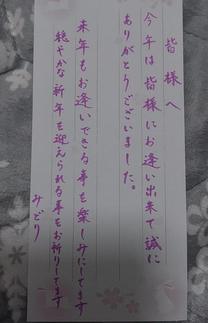 皆様へ
今年は皆様にお逢い出来て誠に
ありがとうございました。
来年もお逢いできる事を楽しみにしてます
穏やかな新年を迎えられる事をお祈りしてます
みどり